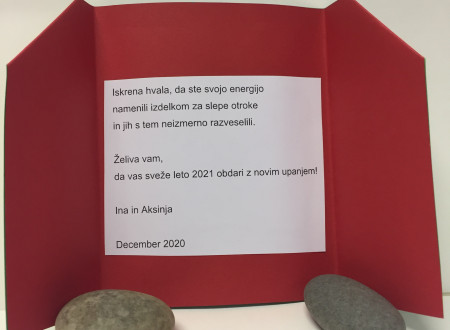 Iskrena hvala, da ste svojo energijo
namenili izdelkom za slepe otroke
in jih s tem neizmerno razveselili.
Želiva vam,
da vas sveže leto 2021 obdari z novim upanjem!
Ina in Aksinja
December 2020